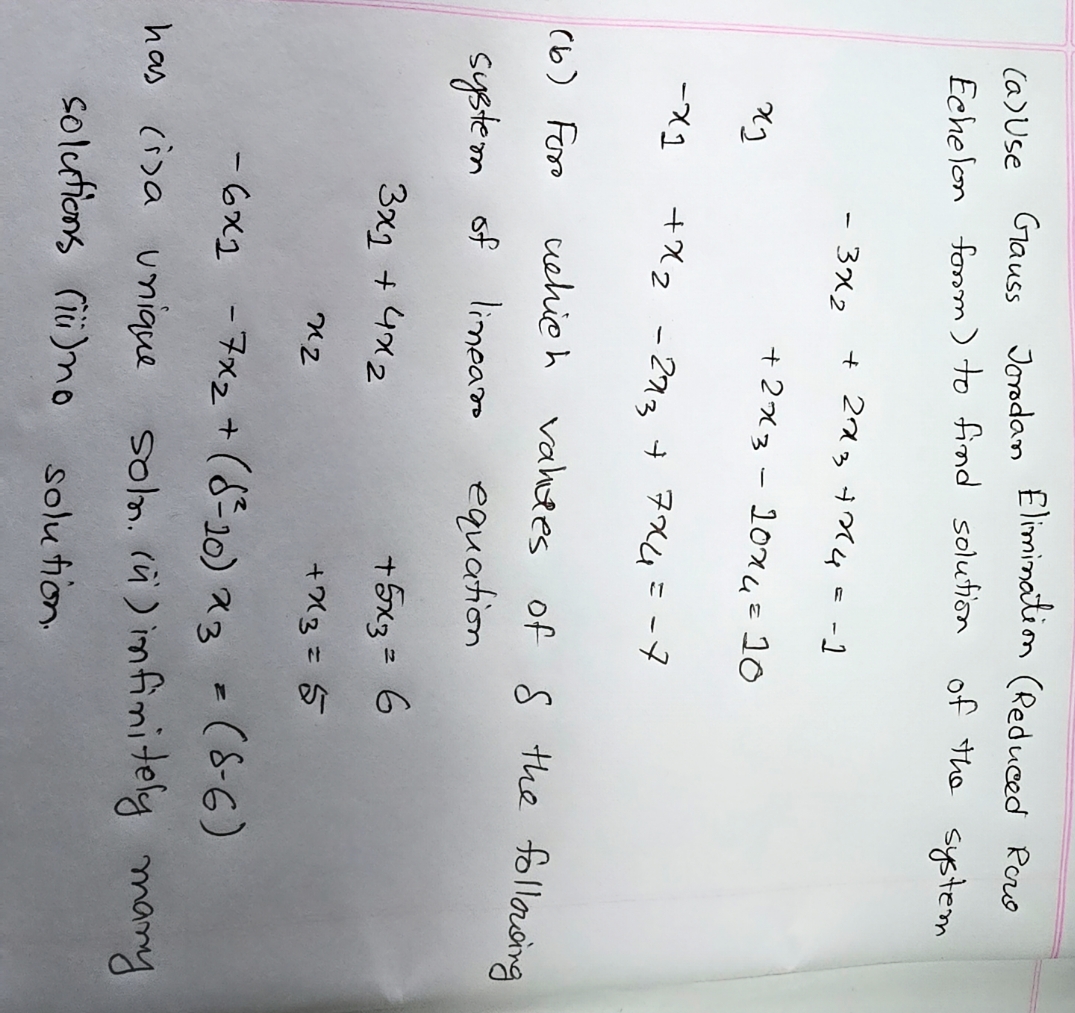 (a) Use Gauss Jordan Elimination (Reduced Row
Echelon form) to find solution of the system
- 3x₂ + 2x₃ + x₄ = -1
x₁ + 2x₃ - 10x₄ = 10
-x₁ + x₂ - 2x₃ + 7x₄ = -7
(b) For which values of δ the following
system of linear equation
3x₁ + 4x₂ + 5x₃ = 6
x₂ + x₃ = 5
- 6x₁ - 7x₂ + (δ²-10) x₃ = (δ-6)
has (i) a unique soln. (ii) infinitely many
solutions (iii) no solution.